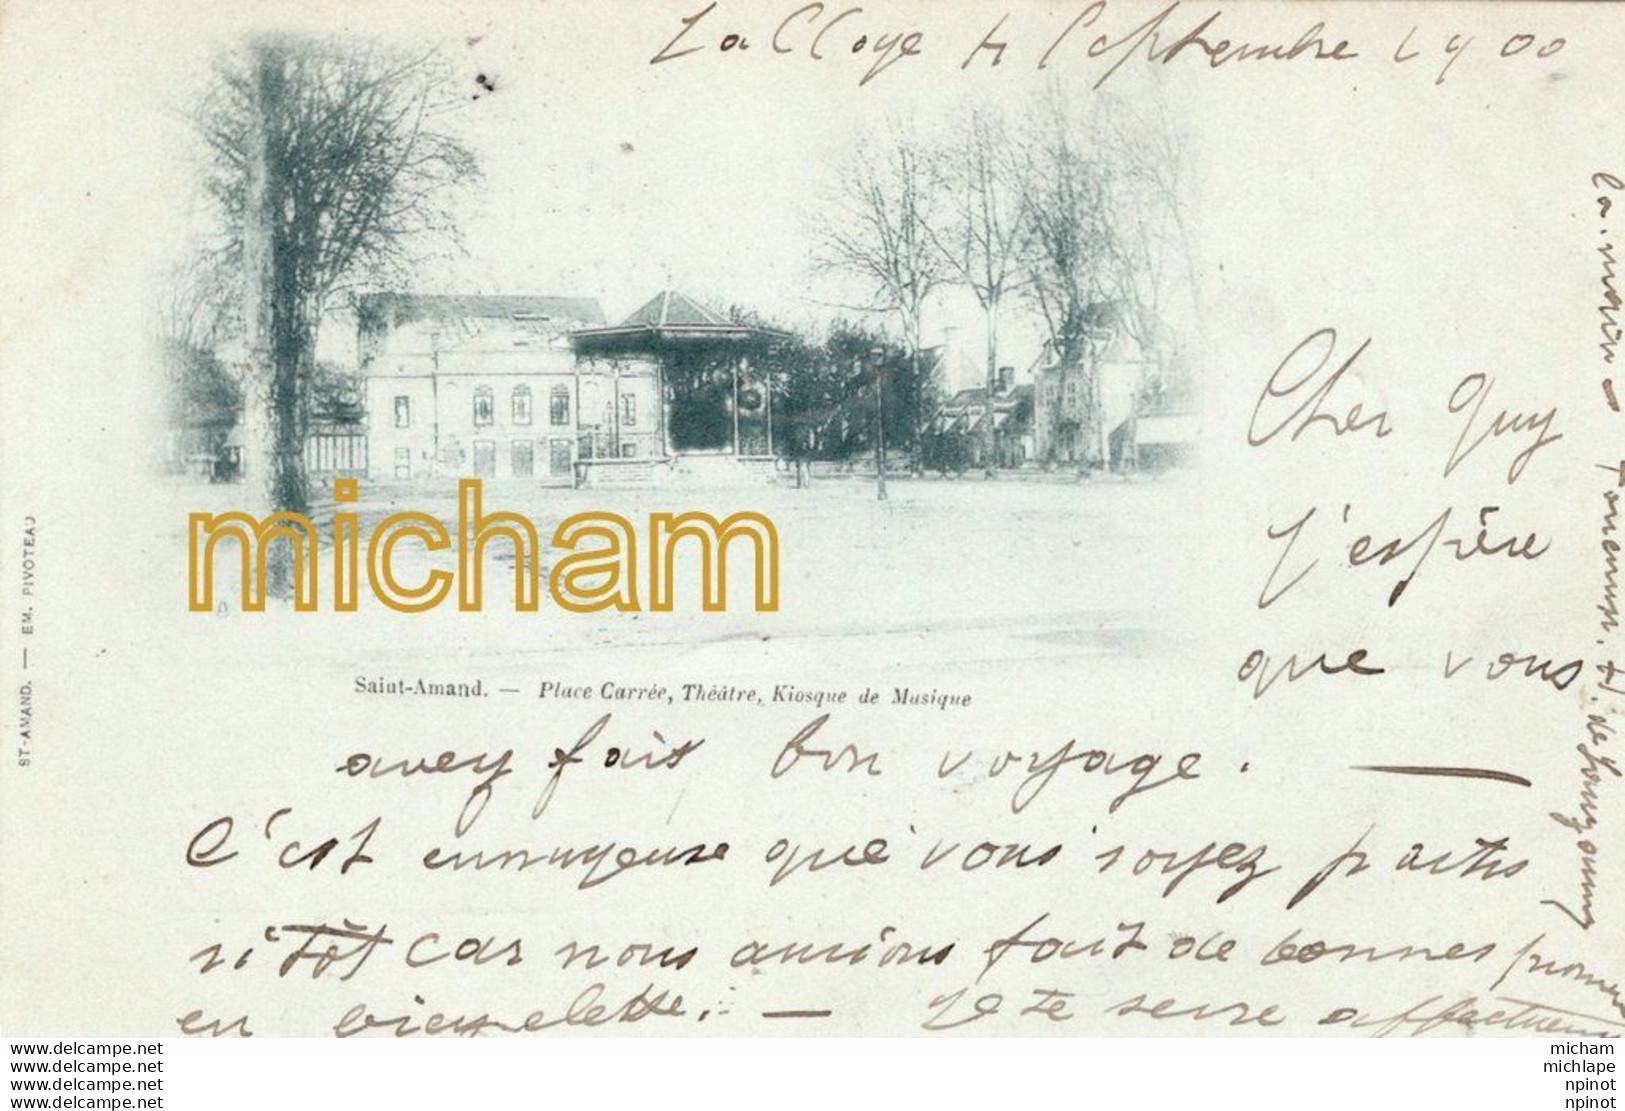 La Cloye 4 Septembre 1900
Cher Guy
j'espère
que vous
avez fais bon voyage. —
C'est ennuyeuse que vous soyez partis
si tôt car nous aurions fait de bonnes promen
en bicyclette. — Je te serre affectueus
la main
Saint-Amand. — Place Carrée, Théâtre, Kiosque de Musique
ST-AMAND. — EM. PIVOTEAU
micham
www.delcampe.net
www.delcampe.net
www.delcampe.net
www.delcampe.net
micham
michlape
npinot
npinot